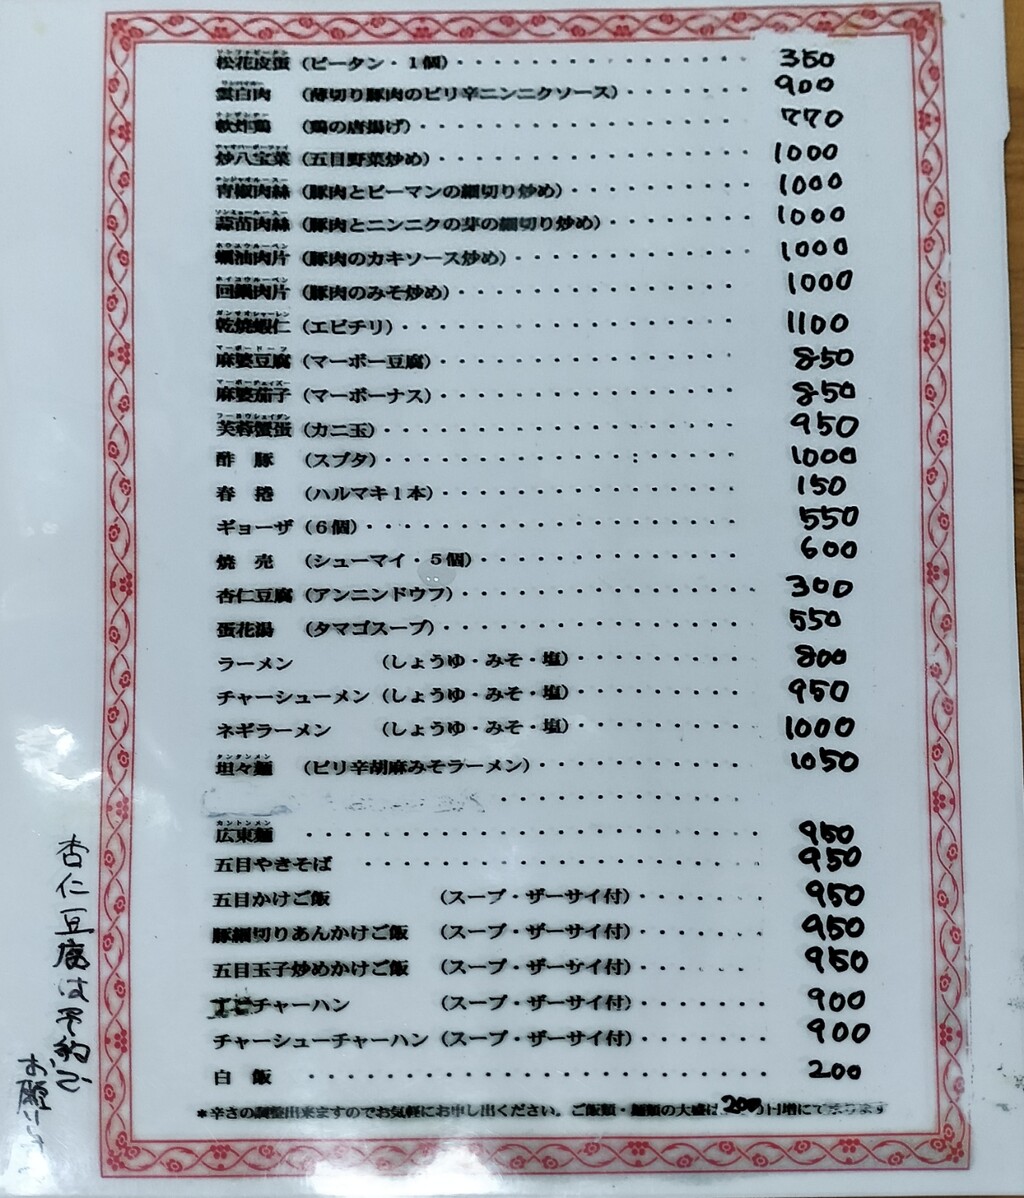 松花皮蛋 (ピータン・1個)・・・・・・・・・・・・・・・・ 350
雲白肉 (薄切り豚肉のピリ辛ニンニクソース)・・・・・・・ 900
軟炸鶏 (鶏の唐揚げ)・・・・・・・・・・・・・・・・・・ 770
炒八宝菜 (五目野菜炒め)・・・・・・・・・・・・・・・・・ 1000
青椒肉絲 (豚肉とピーマンの細切り炒め)・・・・・・・・・・ 1000
蒜苗肉絲 (豚肉とニンニクの芽の細切り炒め)・・・・・・・・ 1000
蠣油肉片 (豚肉のカキソース炒め)・・・・・・・・・・・・・ 1000
回鍋肉片 (豚肉のみそ炒め)・・・・・・・・・・・・・・・・ 1000
乾焼蝦仁 (エビチリ)・・・・・・・・・・・・・・・・・・・ 1100
麻婆豆腐 (マーボー豆腐)・・・・・・・・・・・・・・・・・ 850
麻婆茄子 (マーボーナス)・・・・・・・・・・・・・・・・・ 850
芙蓉蟹蛋 (カニ玉)・・・・・・・・・・・・・・・・・・・・ 950
酢 豚 (スブタ)・・・・・・・・・・・・・・・・・・・・ 1000
春 捲 (ハルマキ1本)・・・・・・・・・・・・・・・・・ 150
ギョーザ (6個)・・・・・・・・・・・・・・・・・・・・・ 550
焼 売 (シューマイ・5個)・・・・・・・・・・・・・・・ 600
杏仁豆腐 (アンニンドウフ)・・・・・・・・・・・・・・・・ 300
蛋花湯 (タマゴスープ)・・・・・・・・・・・・・・・・・ 550
ラーメン (しょうゆ・みそ・塩)・・・・・・・・・ 800
チャーシューメン (しょうゆ・みそ・塩)・・・・・・・・・ 950
ネギラーメン (しょうゆ・みそ・塩)・・・・・・・・・ 1000
坦々麺 (ピリ辛胡麻みそラーメン)・・・・・・・・・・・・ 1050
広東麺 ・・・・・・・・・・・・・・・・・・・・・・・・ 950
五目やきそば ・・・・・・・・・・・・・・・・・・・・・ 950
五目かけご飯 (スープ・ザーサイ付)・・・・・・・ 950
豚細切りあんかけご飯 (スープ・ザーサイ付)・・・・・・・ 950
五目玉子炒めかけご飯 (スープ・ザーサイ付)・・・・・・・ 950
エビチャーハン (スープ・ザーサイ付)・・・・・・・ 900
チャーシューチャーハン (スープ・ザーサイ付)・・・・・・・ 900
白 飯 ・・・・・・・・・・・・・・・・・・・・・・・・ 200
*辛さの調整出来ますのでお気軽にお申し出ください。ご飯類・麺類の大盛は200円増にて承ります
杏仁豆腐は予約で
お願い